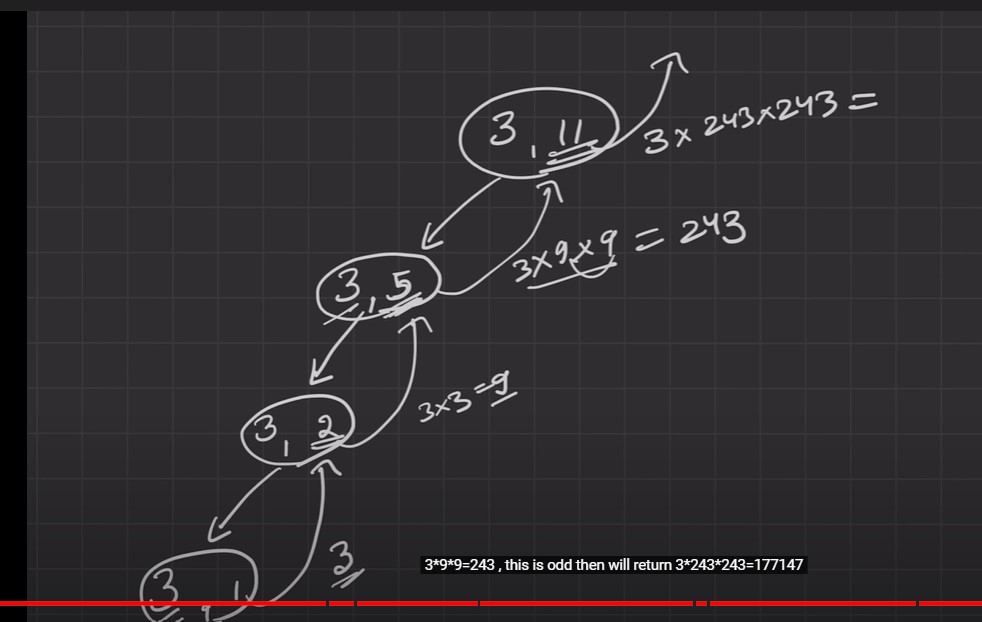 3, 11
3 × 243 × 243 =
3, 5
3×9×9 = 243
3, 2
3×3=9
3, 1
3
3*9*9=243 , this is odd then will return 3*243*243=177147